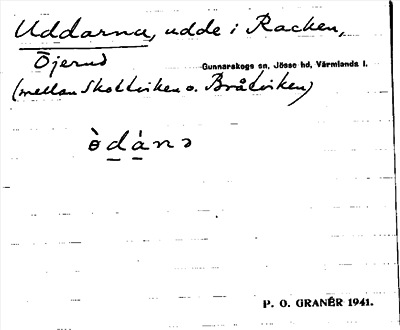 Uddarna, udde i Racken,
Öjerud
Gunnarskogs sn, Jösse hd, Värmlands l.
(mellan Skottviken o. Bråtviken)
ò̱dá̱nɔ
P. O. GRANÉR 1941.